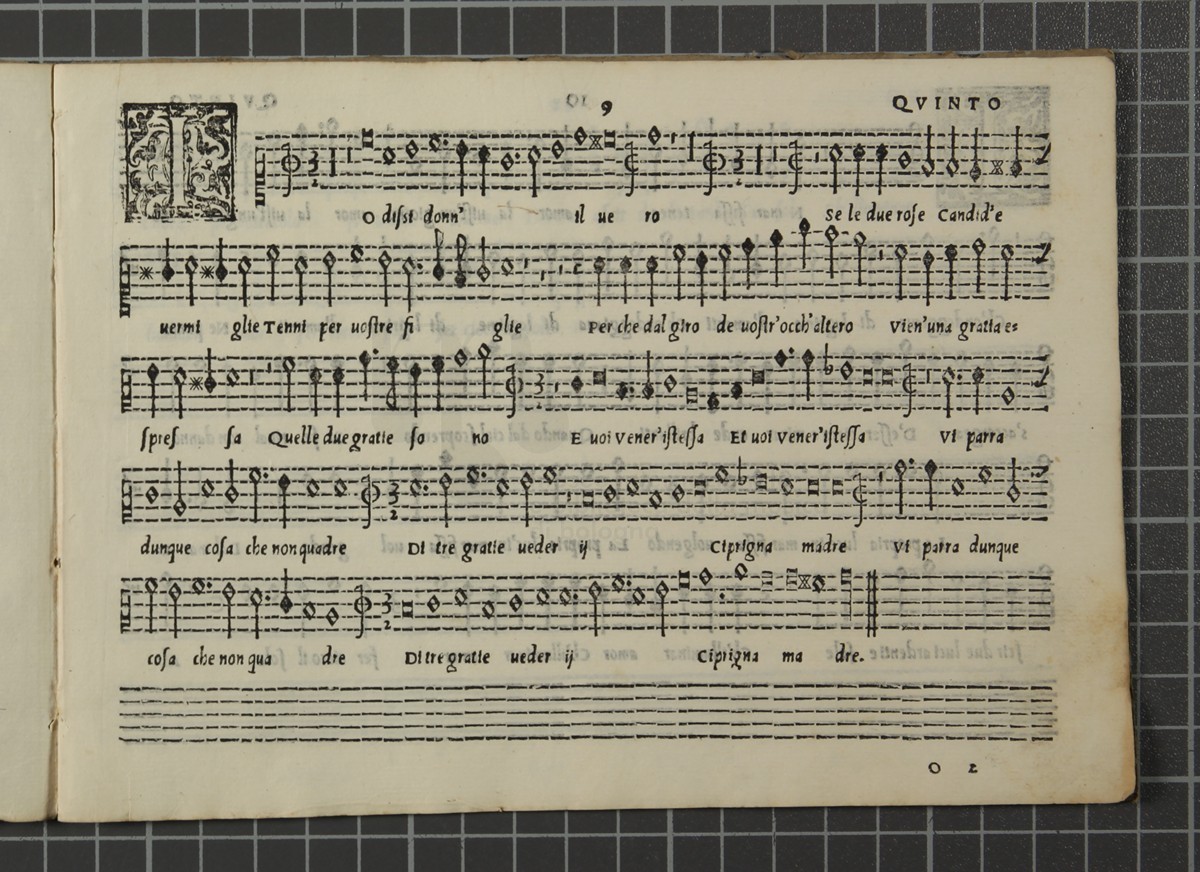 9 QVINTO
IO dissi donn' il ue ro Se le due rose Candid'e
uermi glie Tenni per uostre fi glie Per che dal giro de uostr'occh'altero Vien'una gratia es-
spres sa Quelle due gratie so no E uoi Vener'istessa Et uoi Vener'istessa Vi parra
dunque cosa che non quadre Di tre gratie ueder ij Ciprigna madre Vi parra dunque
cosa che non qua dre Di tre gratie ueder ij Ciprigna ma dre.
O 2